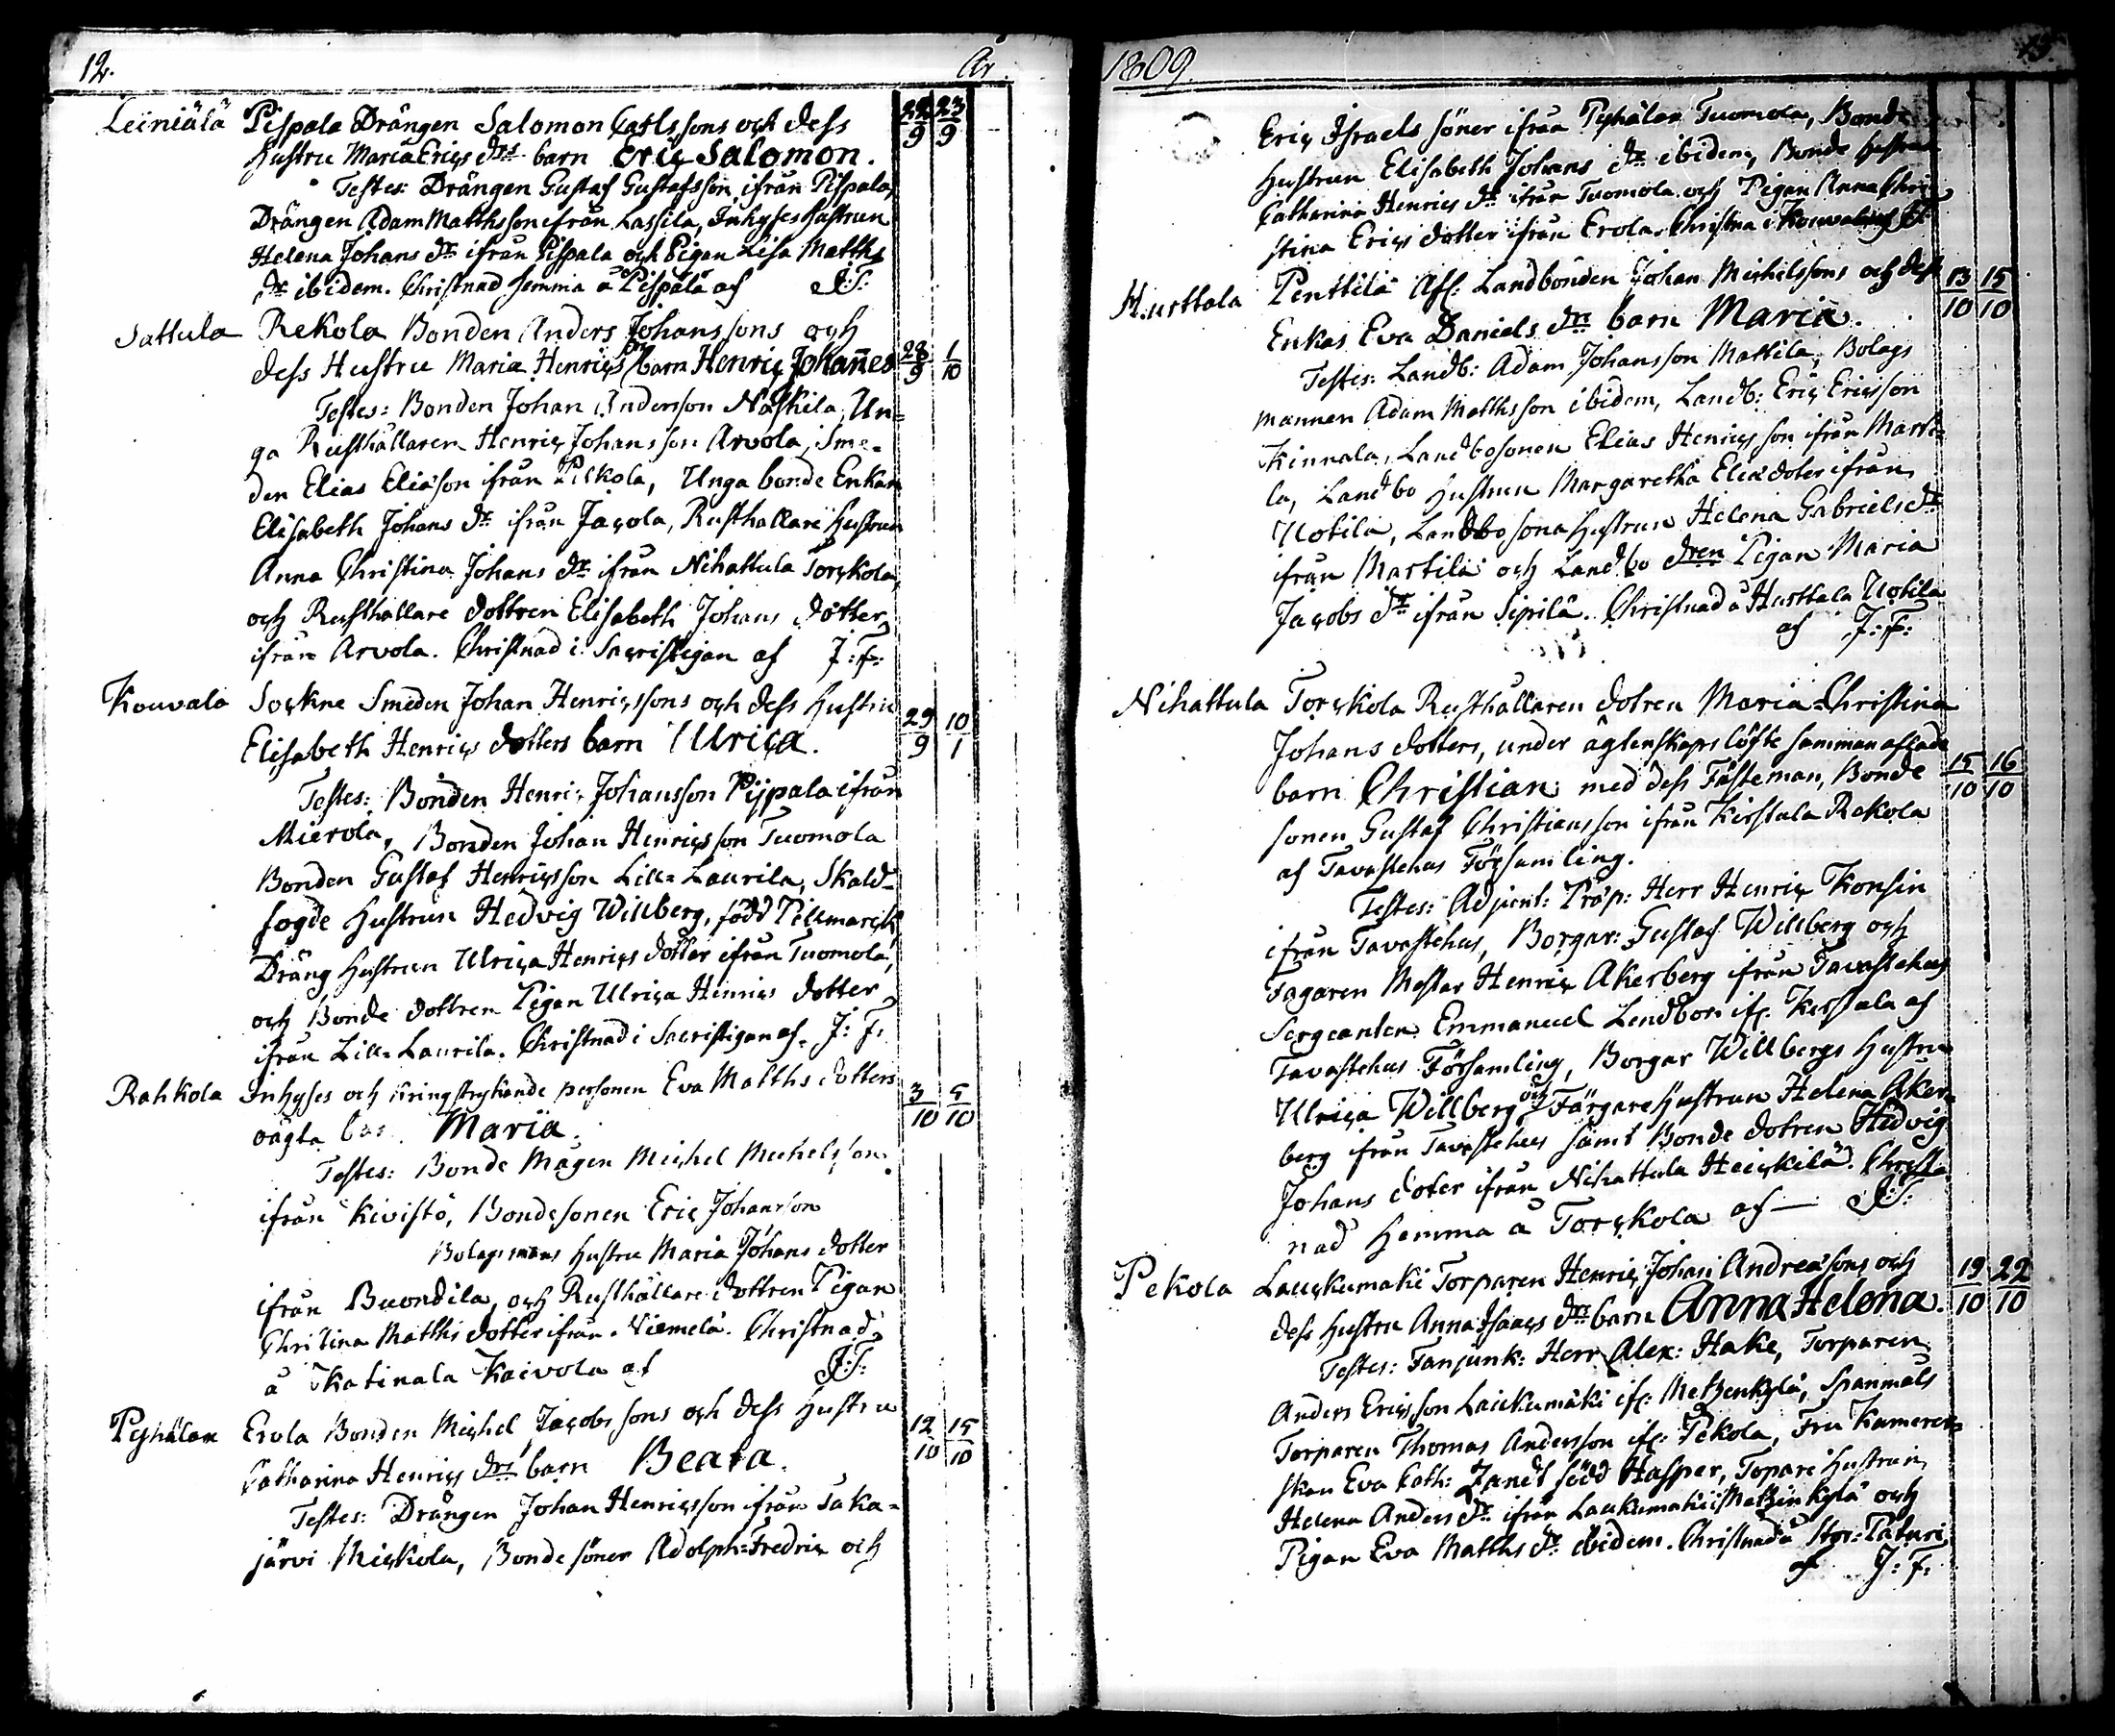 12. År
Leiniälä Pispala Drängen Salomon Carlssons och dess 22/9 23/9
Hustru Maria Erics drs barn Eric Salomon.
Testes: Drängen Gustaf Gustafsson ifrån Pispala,
Drängen Adam Mattsson ifrån Lassila, Inhyses Hustrun
Helena Johans dr ifrån Pispala och Pigan Lisa Matths
dr ibidem. Christnad hemma å Pispala af J:F:
Sattula Rekola Bonden Anders Johanssons och
dess Hustru Maria Henrics drs barn Henric Johannes 28/9 1/10
Testes: Bonden Johan Andersson Naskila, Un=
ga Rusthållaren Henric Johansson Arvola, Sme-
den Elias Eliason ifrån Pelkola, Unga bonde Enkan
Elisabeth Johans dr ifrån Jacola, Rusthallare Hustrun
Anna Christina Johans dr ifrån Nihattula Torckola,
och Rusthallare dottren Elisabeth Johans dotter
ifrån Arvola. Christnad i Sacristigan af J:F:
Kouvala Sockne Smeden Johan Henricssons och dess Hustru
Elisabeth Henrics dotters barn Ulrica. 29/9 10/1
Testes: Bonden Henric Johansson Pijpala ifrån
Mierola, Bonden Johan Henricsson Tuomola
Bonden Gustaf Henricsson Lill= Laurila, Skald-
fogde Hustrun Hedvig Willberg, född Pillmarck,
Dräng Hustrun Ulrica Henrics dotter ifrån Tuomola,
och Bonde dottren Pigan Ulrica Henrics dotter
ifrån Lill= Laurila. Christnad i Sacristigan af J: F:
Rahkola Inhyses och kringstrykande personen Eva Matths dotters 3/10 5/10
oägta bar Maria.
Testes: Bonde Mågen Michel Michelsson
ifrån Kivistö, Bondesonen Eric Johansson
Bolagsmans Hustru Maria Johans dotter
ifrån Buondila, och Rusthållare dottren Pigan
Christina Matths dotter ifrån Niemelä. Christnad
å Katinala Kaivola af J:F:
Pyhälax Erola Bonden Michel Jacobssons och dess Hustru 12/10 15/10
Catharina Henrics drs barn Beata.
Testes: Drängen Johan Henricsson ifrån Taka=
järvi Mickola, Bonde söner Adolph=Fredric och
1809. 13.
Eric Israels söner ifrån Pyhälax Tuomola, Bonde
Hustrun Elisabeth Johans dr ibidem, Bonde Hustrun
Catharina Henrics dr ifrån Tuomola och Pigan Anna Chri
stina Erics dotter ifrån Erola. Christna i Kouvala af J:F
Hurttala Penttilä Afl: Landbonden Johan Michelssons och dess 13/10 15/10
Enkas Eva Daniels drs barn Maria.
Testes: Landb: Adam Johansson Mattila, Bolags
mannen Adam Matthsson ibidem, Landb: Eric Ericsson
Kinnala, Landbosonen Elias Henricsson ifrån Marti=
la, Landbo Hustrun Margaretha Elie doter ifrån
Uotila, Landbo sona Hustrun Helena Gabriels dr
ifrån Martila och Landbo dren Pigan Maria
Jacobs dr ifrån Sipilä. Christnad å Hurttala Uotila
af J:F:
Nihattula Torckola Rusthållaren dotren Maria=Christina
Johans dotters, under ägtenskaps löfte samman aflade
barn Christian med dess Fästeman, Bonde 15/10 16/10
sonen Gustaf Christiansson ifrån Kirstula Rekola
af Tavastehus Församling.
Testes: Adjunt: Präp: Herr Henric Konsin
ifrån Tavastehus, Borgar: Gustaf Willberg och
Fägaren Mester Henric Akerberg ifrån Tavastehus
Sergeanten Emmanuel Lendbom if: Kirstula af
Tavastehus Församling, Borgar Willbergs Hustru
Ulrica Willberg och Färgare Hustrun Helena Aker=
berg ifrån Tavastehus samt Bonde dotren Hedvig
Johans doter ifrån Nihattula Heickilä. Christ=
nad hemma å Torckola af — J:F:
Pekola Lauckumaki Torparen Henric Johan Andreasons och 19/10 22/10
dess Hustru Anna Isaacs drs barn Anna Helena.
Testes: Fanjunk: Herr Alex: Hake, Torparen
Anders Ericsson Lauckumäki if: Metzenkylä, Spanmåls
Torparen Thomas Andersson if: Pekola, Fru Kamerer=
skan Eva Cath: Zandt född Hasper, Topare Hustrun
Helena Anders dr ifrån Laukumaki i Metzinkylä och
Pigan Eva Matths dr ibidem. Christnad å Stor=Paturi
af J: F: